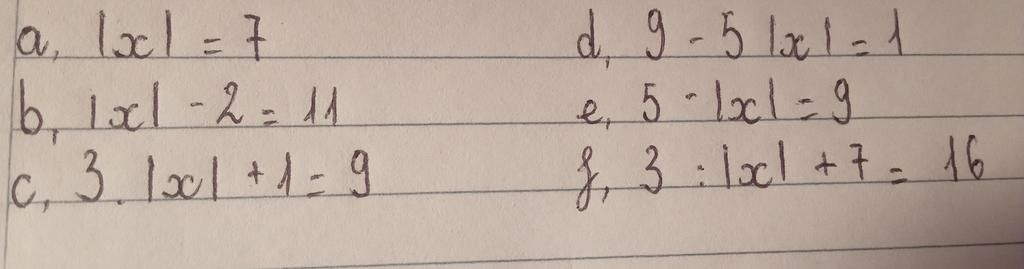 a, |x| = 7
b, |x| - 2 = 11
c, 3. |x| + 1 = 9
d, 9 - 5 |x| = 1
e, 5 - |x| = 9
f, 3 : |x| + 7 = 16